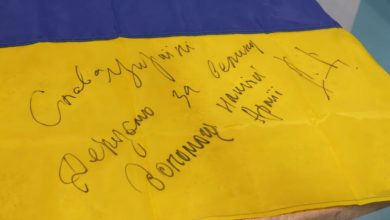 Слава Україні
Дякуємо за велику
допомогу нашій
Армії